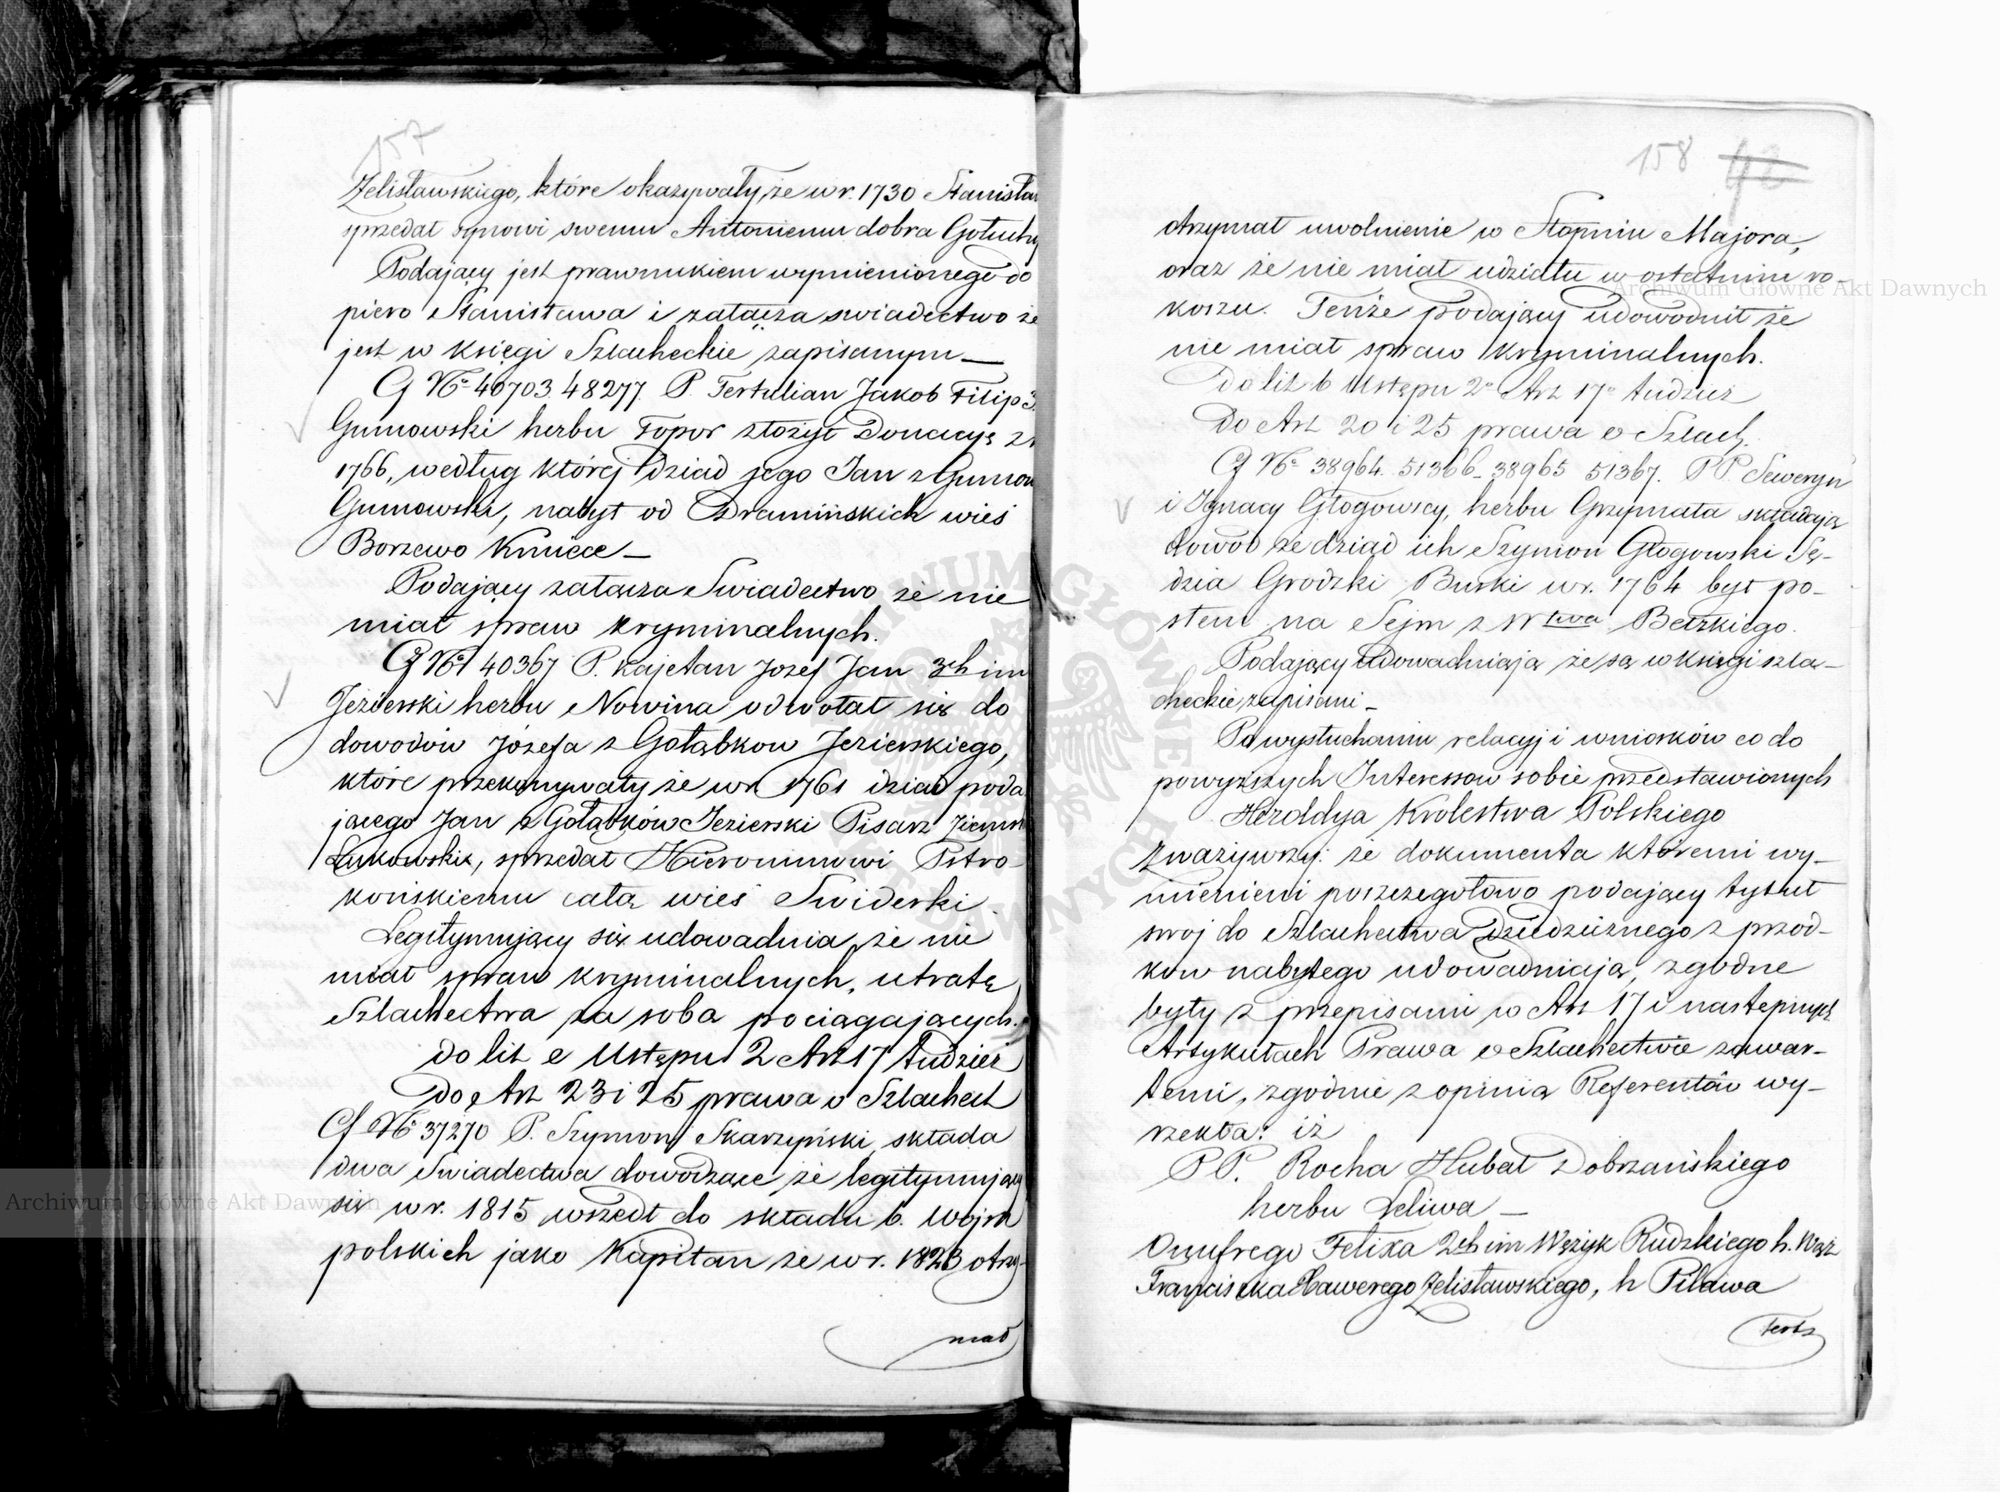 157
Żelisławskiego, które okazywały, że w r. 1730 Stanisław
sprzedał synowi swemu Antoniemu dobra Gołuchy
Podający jest prawnukiem wymienionego do
piero Stanisława i załącza swiadectwo że
jest w Księgi Szlacheckie zapisanym —
Cf No 40703. 48277. P. Tertulian Jakob Filip 3.
Gumowski herbu Topor złożył Donacyą z r.
1766, według której dziad jego Jan z Gumow
Gumowski, nabył od Dramińskich wieś
Borzewo Kmiece —
Podający załącza Swiadectwo że nie
miał spraw kryminalnych.
Cf No 40367 P. Kajetan Jozef Jan 3ch im
Jezierski herbu Nowina odwołał się do
dowodów Józefa z Gołąbkow Jezierskiego,
które przekonywały że w r. 1761 dziad poda
jącego Jan z Gołąbków Jezierski Pisarz Ziemsk
Łukowski, sprzedał Hieronimowi Pstro-
końskiemu całą wieś Swiderki.
Legitymujący się udowadnia, że nie
miał spraw kryminalnych, utratę
Szlachectwa za sobą pociągających.
do lit e Ustępu 2 Art 17 tudzież
Do Art 23 i 25 prawa o Szlachect
Cf No 37270 P. Szymon Skarzyński składa
dwa Swiadectwa dowodzące że legitymujący
się w r. 1815 wszedł do składu b. Wojsk
polskich jako Kapitan że w r. 1823 otrzy-
mał
158
otrzymał uwolnienie w Stopniu Majora,
oraz że nie miał udziału w ostatnim ro-
koszu. Tenże podający udowodnił że
nie miał spraw kryminalnych.
do lit b Ustępu 2o Art 17o tudzież
Do Art 20 i 25 prawa o Szlach.
Cf No 38964. 51366 – 38965 51367. PP. Seweryn
i Ignacy Głogowscy, herbu Grzymała składają
dowód że dziad ich Szymon Głogowski Sę-
dzia Grodzki Buski w r. 1764 był po-
słem na Sejm z Wtwa Bełzkiego.
Podający udowadniają że są w księgi szla-
checkie zapisani –
Po wysłuchaniu relacyj i wniosków co do
powyższych Interessow sobie przedstawionych
Heroldya Krolestwa Polskiego
Zważywszy: że dokumenta któremi wy-
mienieni poszczegołowo podający tytuł
swój do Szlachectwa dziedzicznego z przod-
kow nabytego udowadniają, zgodne
były z przepisami w Art 17 i następnych
Artykułach Prawa o Szlachectwie zawar-
temi, zgodnie z opinią Referentów wy-
rzekła: iż
PP. Rocha Hubal Dobrzańskiego
herbu Leliwa —
Onufrego Felixa 2ch im Wężyk Rudzkiego h. Wąż
Franciszka Xawerego Żelisławskiego, h Pilawa
Tert
Archiwum Główne Akt Dawnych
Archiwum Główne Akt Dawnych
ARCHIWUM GŁÓWNE AKT DAWNYCH